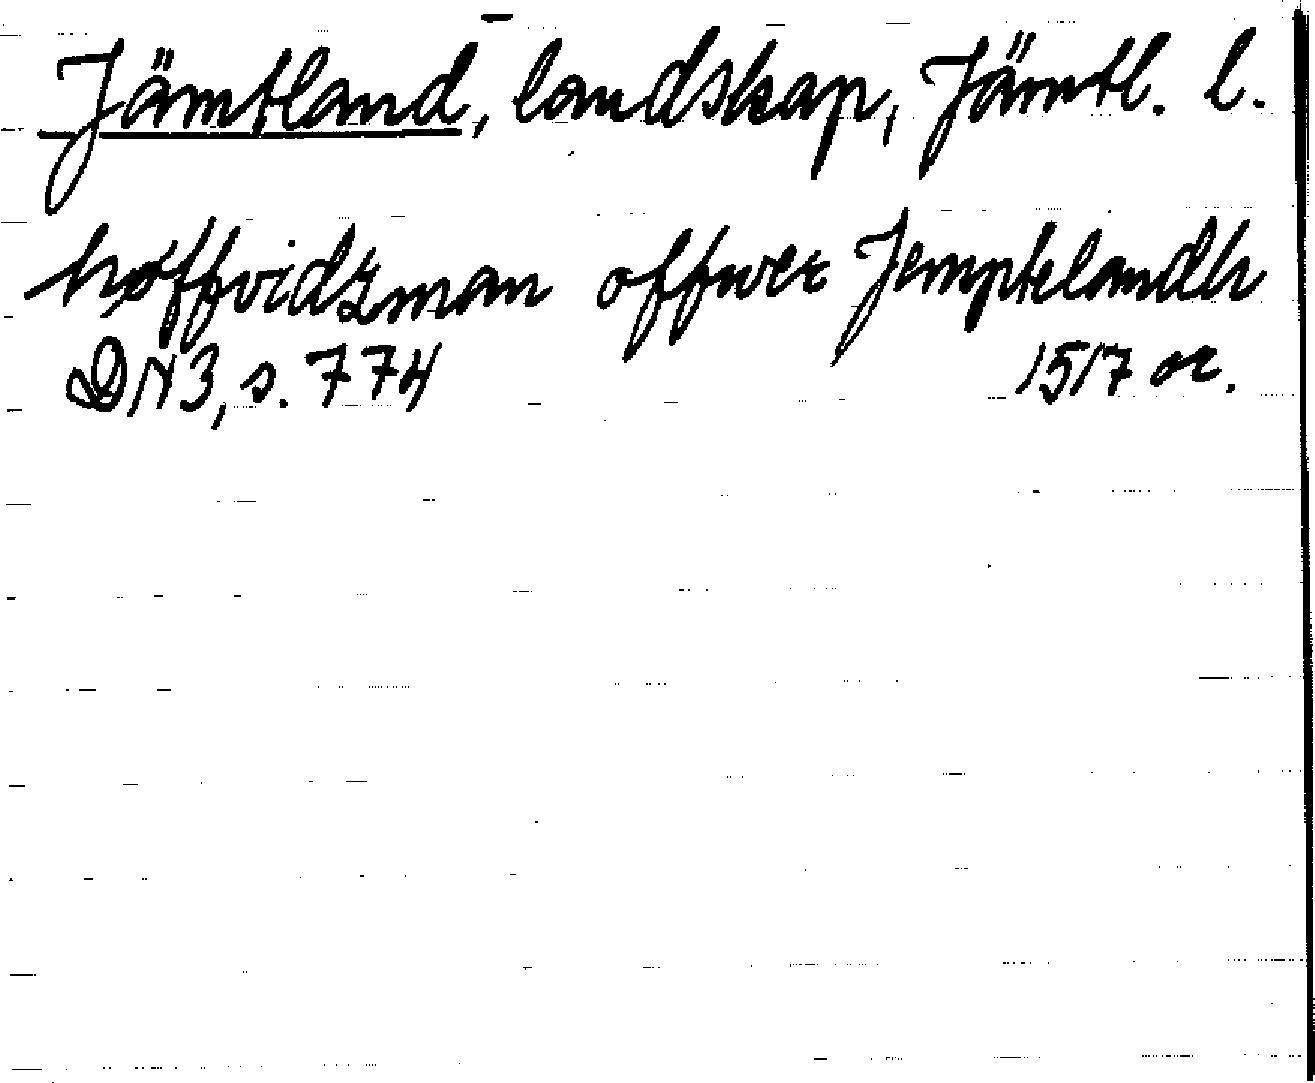 Jämtland, landskap, Jämtl. l.
høffvidzman offwer Jemptelandh
DN 3, s. 774 1517 or.